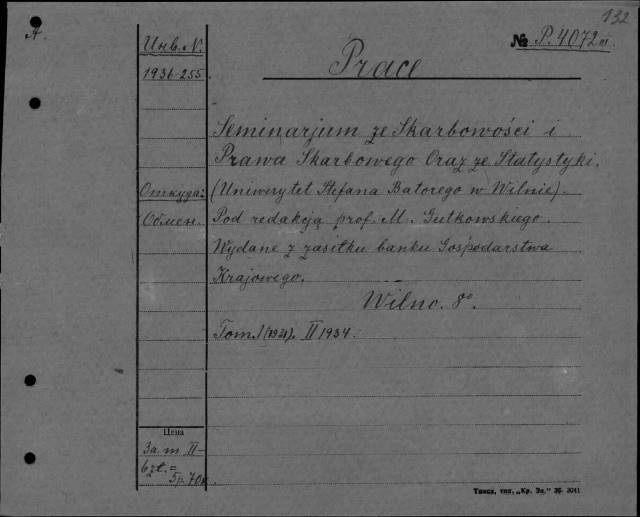 132
A.
Инв. N.
№ P. 4072 III
1936-255.
Prace
Seminarjum ze Skarbowości i
Prawa Skarbowego Oraz ze Statystyki.
Откуда:
(Uniwerytet Stefana Batorego w Wilnie).
Обмен.
Pod redakcją prof. M. Gutkowskiego.
Wydane z zasiłku banku Gospodarstwa
Krajowego.
Wilno. 8°.
Tom. I (1931). II 1934.
Цена
За т II –
6 zł. =
5р. 70к
Томск, тип. „Кр. Зн." 3041